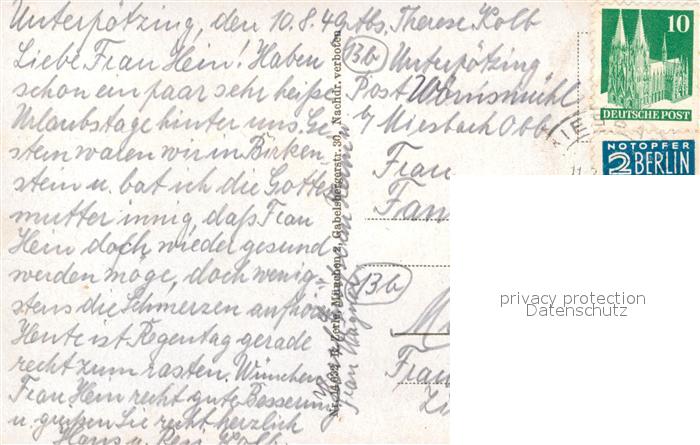 Unterpötzing, den 10.8.49
Liebe Frau Hein! Haben
schon ein paar sehr heiße
Urlaubstage hinter uns. Ge
stern waren wir in Birken
stein u. bat ich die Gottes
mutter innig, daß Frau
Hein doch wieder gesund
werden möge, doch wenig-
stens die Schmerzen aufhör
Heute ist Regentag gerade
recht zum rasten. Wünschen
Frau Hein recht gute Besserung
u. grüßen Sie recht herzlich
Hans u. Resi Kolb
Abs. Therese Kolb
13b Unterpötzing
Post Wörnsmühl
b/ Miesbach Obb.
Frau
Fan
13b
Frau
Frau Wagner
R. Zerle, München 2, Gabelsbergerstr. 30, Nachdr. verboten
10
DEUTSCHE POST
NOTOPFER
2 BERLIN
privacy protection
Datenschutz